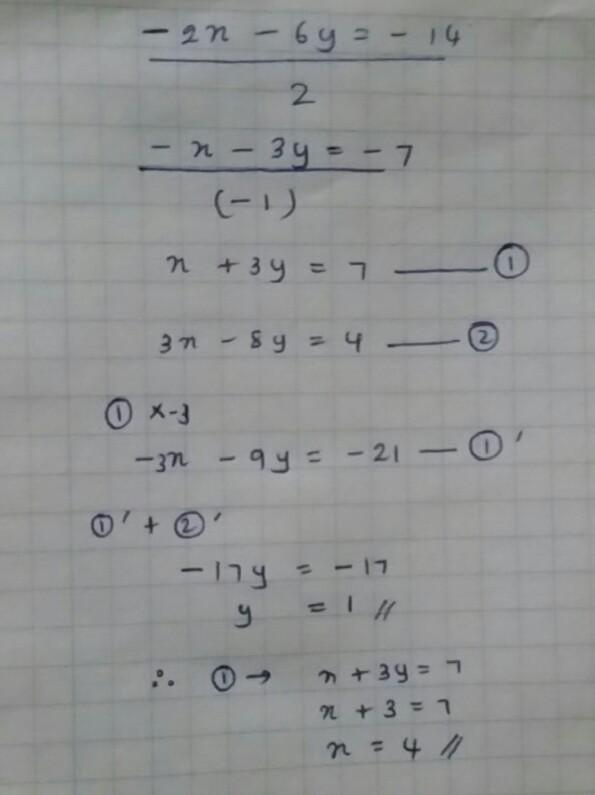 - 2x - 6y = - 14
2
- x - 3y = - 7
(-1)
x + 3y = 7 —— ①
3x - 8y = 4 —— ②
① ×-3
-3x - 9y = -21 — ①'
①' + ②'
-17y = -17
y = 1 //
∴ ① → x + 3y = 7
x + 3 = 7
x = 4 //